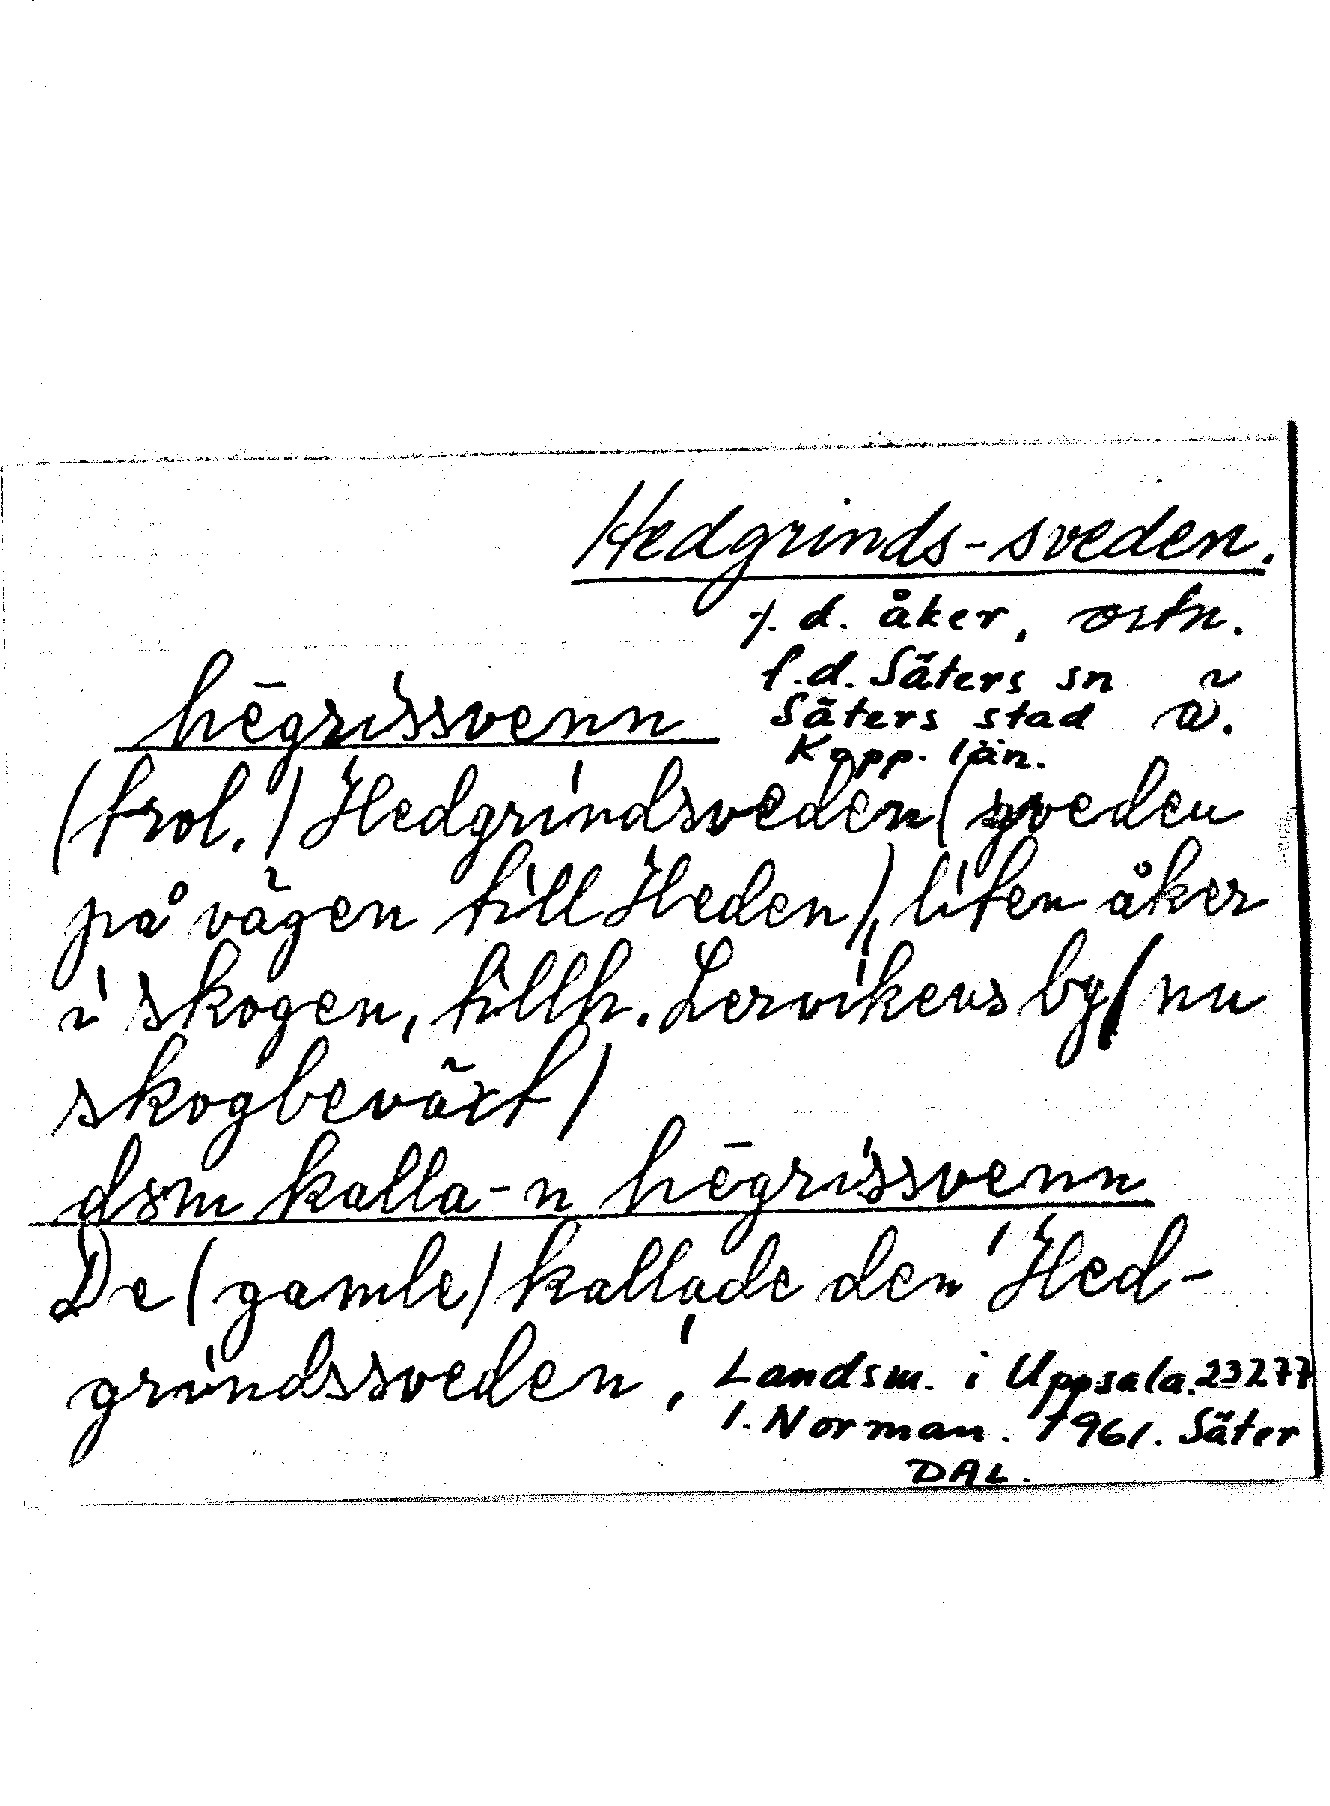 Hedgrinds-sveden.
f. d. åker, ortn.
f.d. Säters sn
Säters stad ä.
Kopp. län.
hēgrissvenn
(trol.) Hedgrindsveden (sveden
på vägen till Heden), liten åker
i skogen, tillh. Lervikens by (nu
skogbeväxt)
dsm kalla-n hēgrissvenn
De (gamle) kallade den 'Hed-
grindssveden'.
Landsm. i Uppsala. 23277
I. Norman. 1961. Säter
DAL.